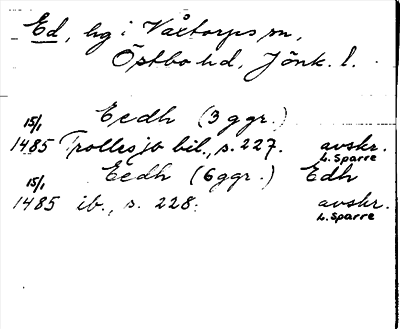 Ed, hg i Våltorps sn,
Östbo hd, Jönk. l.
15/1 Eedh (3 ggr.)
1485 Trollesjö bil., s. 227. avskr.
L. Sparre
15/1 Eedh (6 ggr.) Edh
1485 ib., s. 228. avskr.
L. Sparre